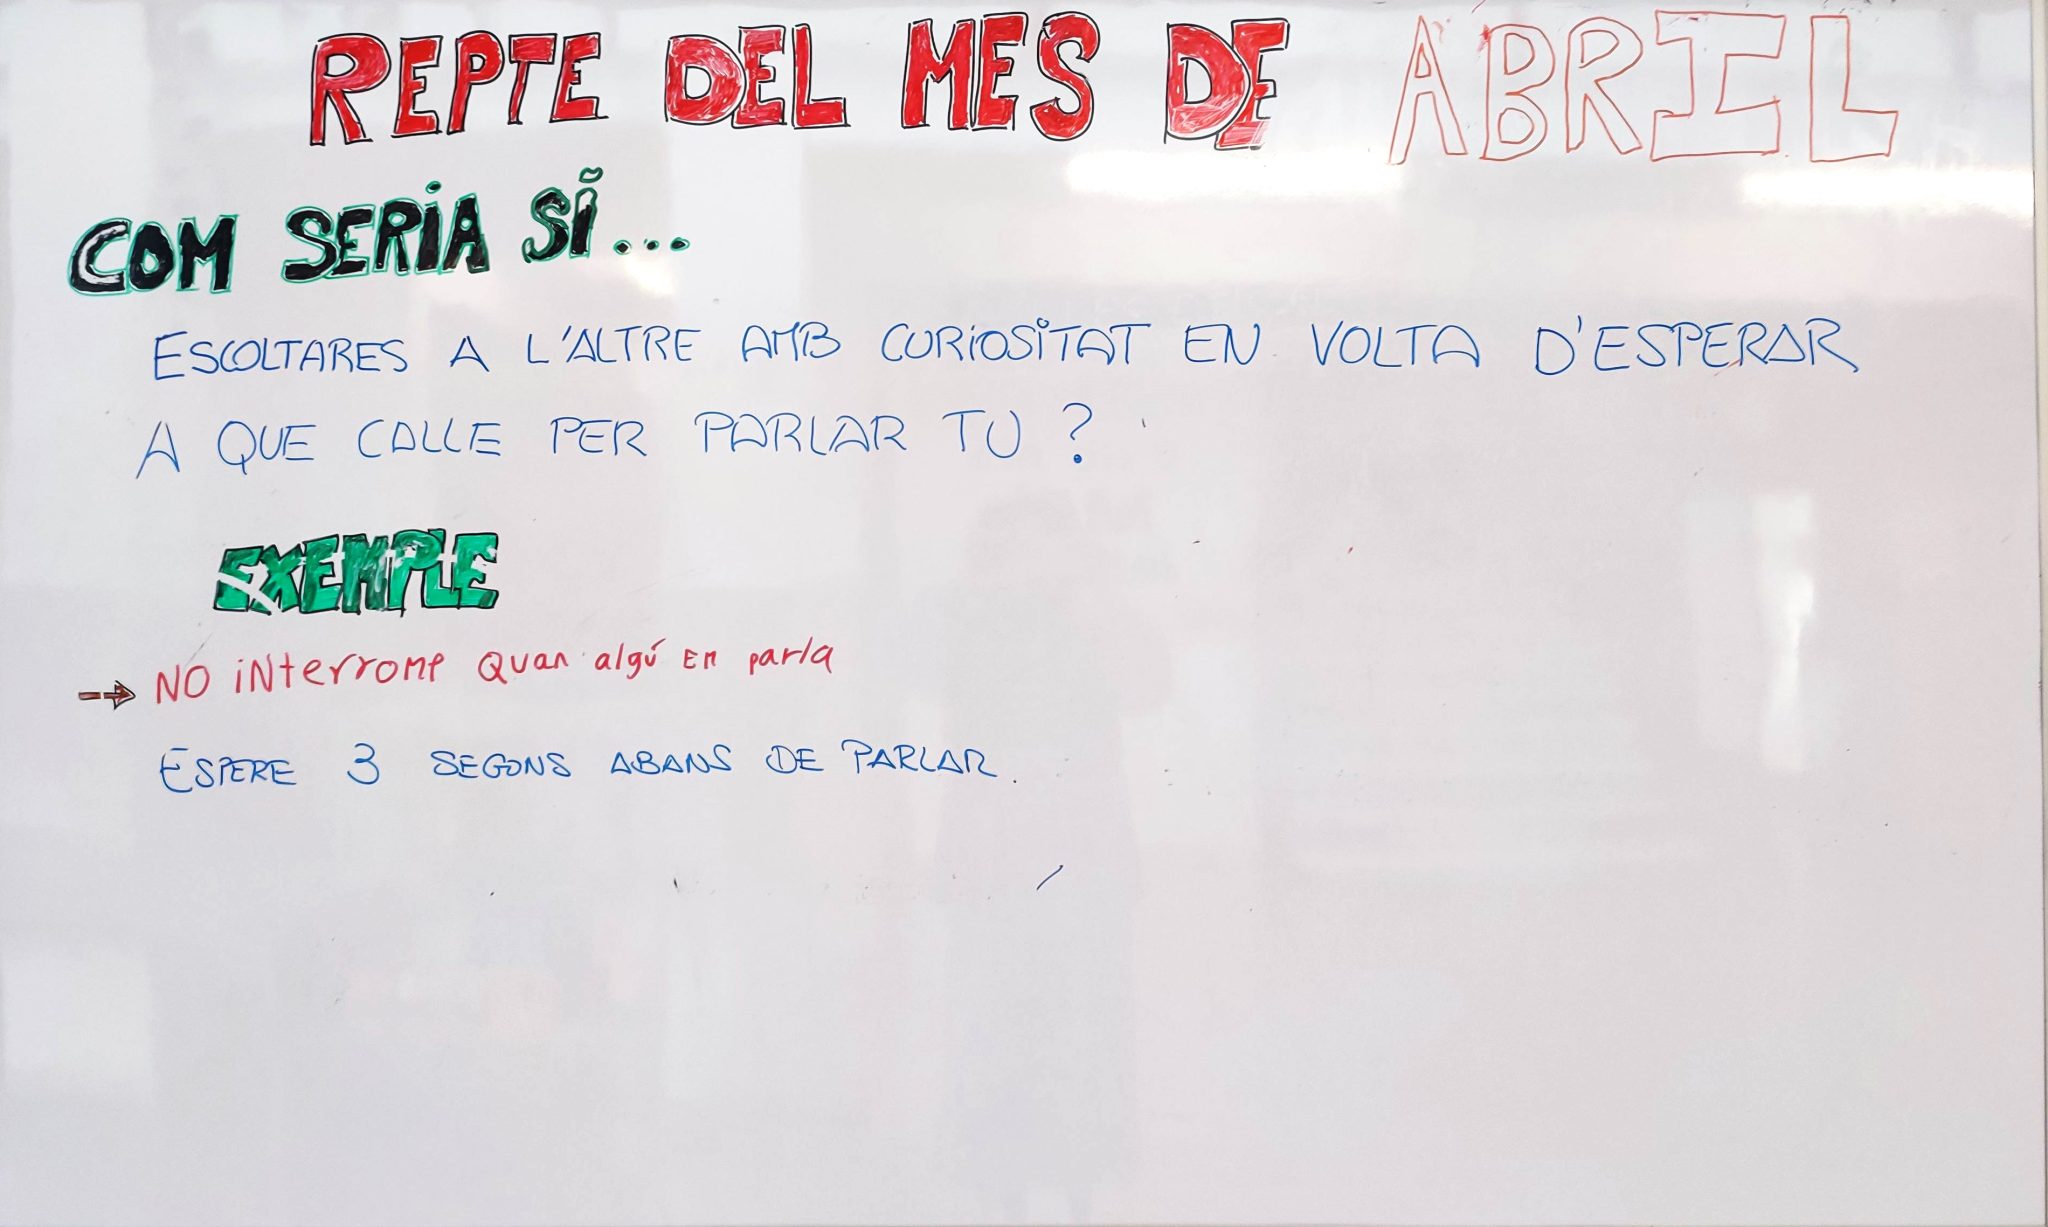 REPTE DEL MES DE ABRIL
COM SERIA SĨ...
ESCOLTARES A L'ALTRE AMB CURIOSITAT EN VOLTA D'ESPERAR
A QUE CALLE PER PARLAR TU ?
EXEMPLE
→ NO iNterromp Quan algú Em parla
ESPERE 3 SEGONS ABANS DE PARLAR.